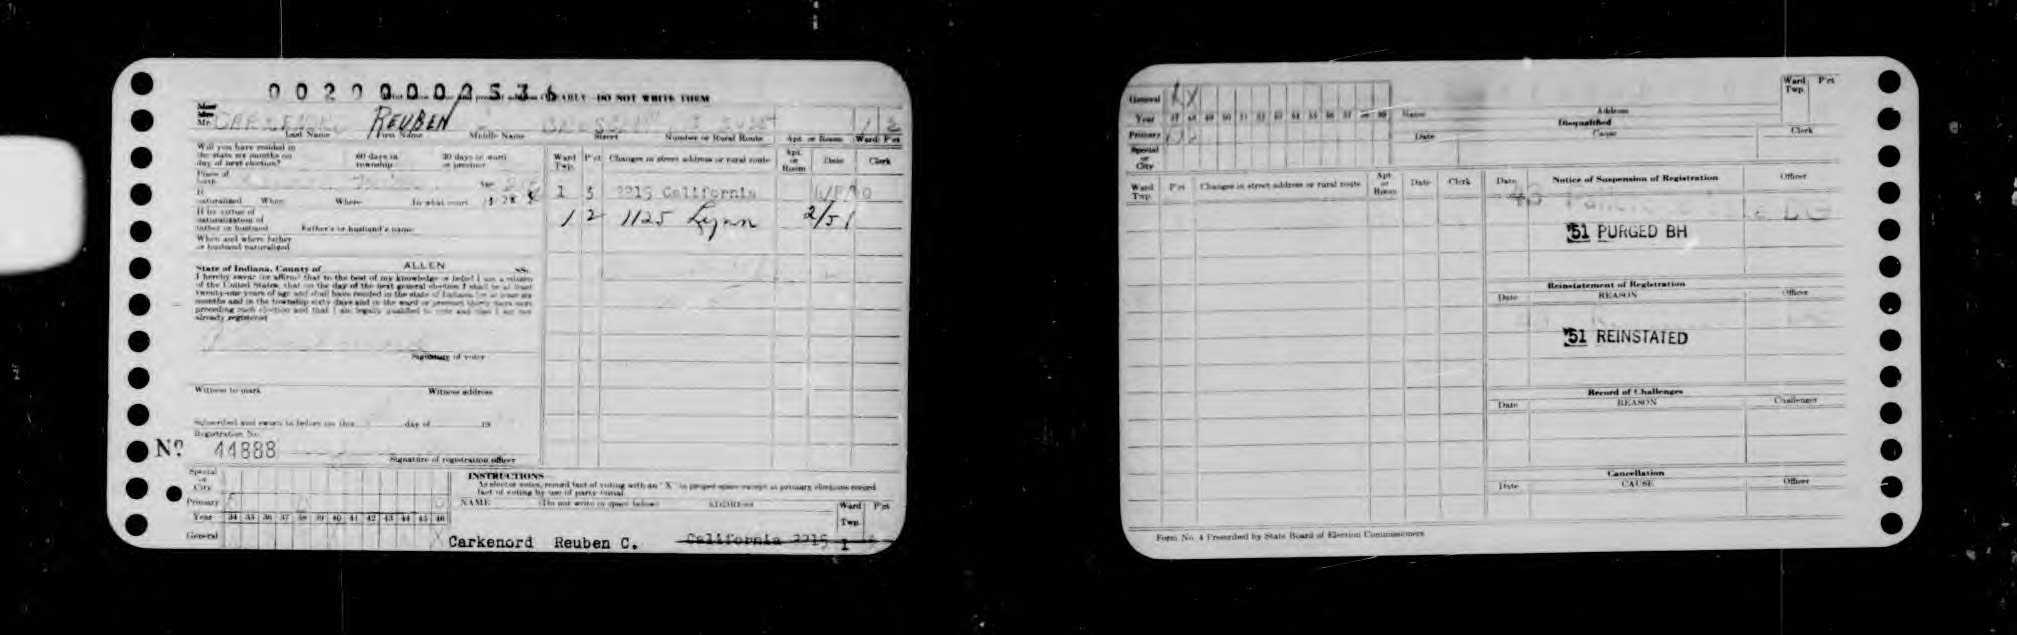 0 0 2 0 0 0 0 2 5 3 6
DO NOT WRITE THEM
Mr. REUBEN 1 2
Last Name First Name Middle Name Street Number or Rural Route Apt. or Room Ward P'ct
Will you have resided in
the state six months on
day of next election?
60 days in
township
30 days in ward
or precinct
Place of
birth
Age
If
naturalized When Where In what court
If by virtue of
naturalization of
father or husband Father's or husband's name
When and where father
or husband naturalized
State of Indiana, County of ALLEN ss.
I hereby swear (or affirm) that to the best of my knowledge or belief I am a citizen
of the United States, that on the day of the next general election I shall be at least
twenty-one years of age and shall have resided in the state of Indiana for at least six
months and in the township sixty days and in the ward or precinct thirty days next
preceding such election and that I am legally qualified to vote and that I am not
already registered
Signature of voter
Witness to mark Witness address
Subscribed and sworn to before me this day of 19
Registration No.
No. 44888
Signature of registration officer
Ward
Twp. P'ct Changes in street address or rural route Apt.
or
Room Date Clerk
1 3 2215 California
1 2 1125 Lynn 2/51
Special
or
City
Primary
Year 34 35 36 37 38 39 40 41 42 43 44 45 46
General X
INSTRUCTIONS
As elector votes, record fact of voting with an "X" in proper space except at primary elections record
fact of voting by use of party initial
NAME (Do not write in space below) ADDRESS Ward
Twp. P'ct
Carkenord Reuben C. California 2215 1
General X
Year 47 48 49 50 51 52 53 54 55 56 57 58 59
Primary
Special
or
City
Name Address Ward
Twp. P'ct
Disqualified
Date Cause Clerk
Ward
Twp. P'ct Changes in street address or rural route Apt.
or
Room Date Clerk
Date Notice of Suspension of Registration Officer
'51 PURGED BH
Reinstatement of Registration
Date REASON Officer
'51 REINSTATED
Record of Challenges
Date REASON Challenger
Cancellation
Date CAUSE Officer
Form No. 4 Prescribed by State Board of Election Commissioners